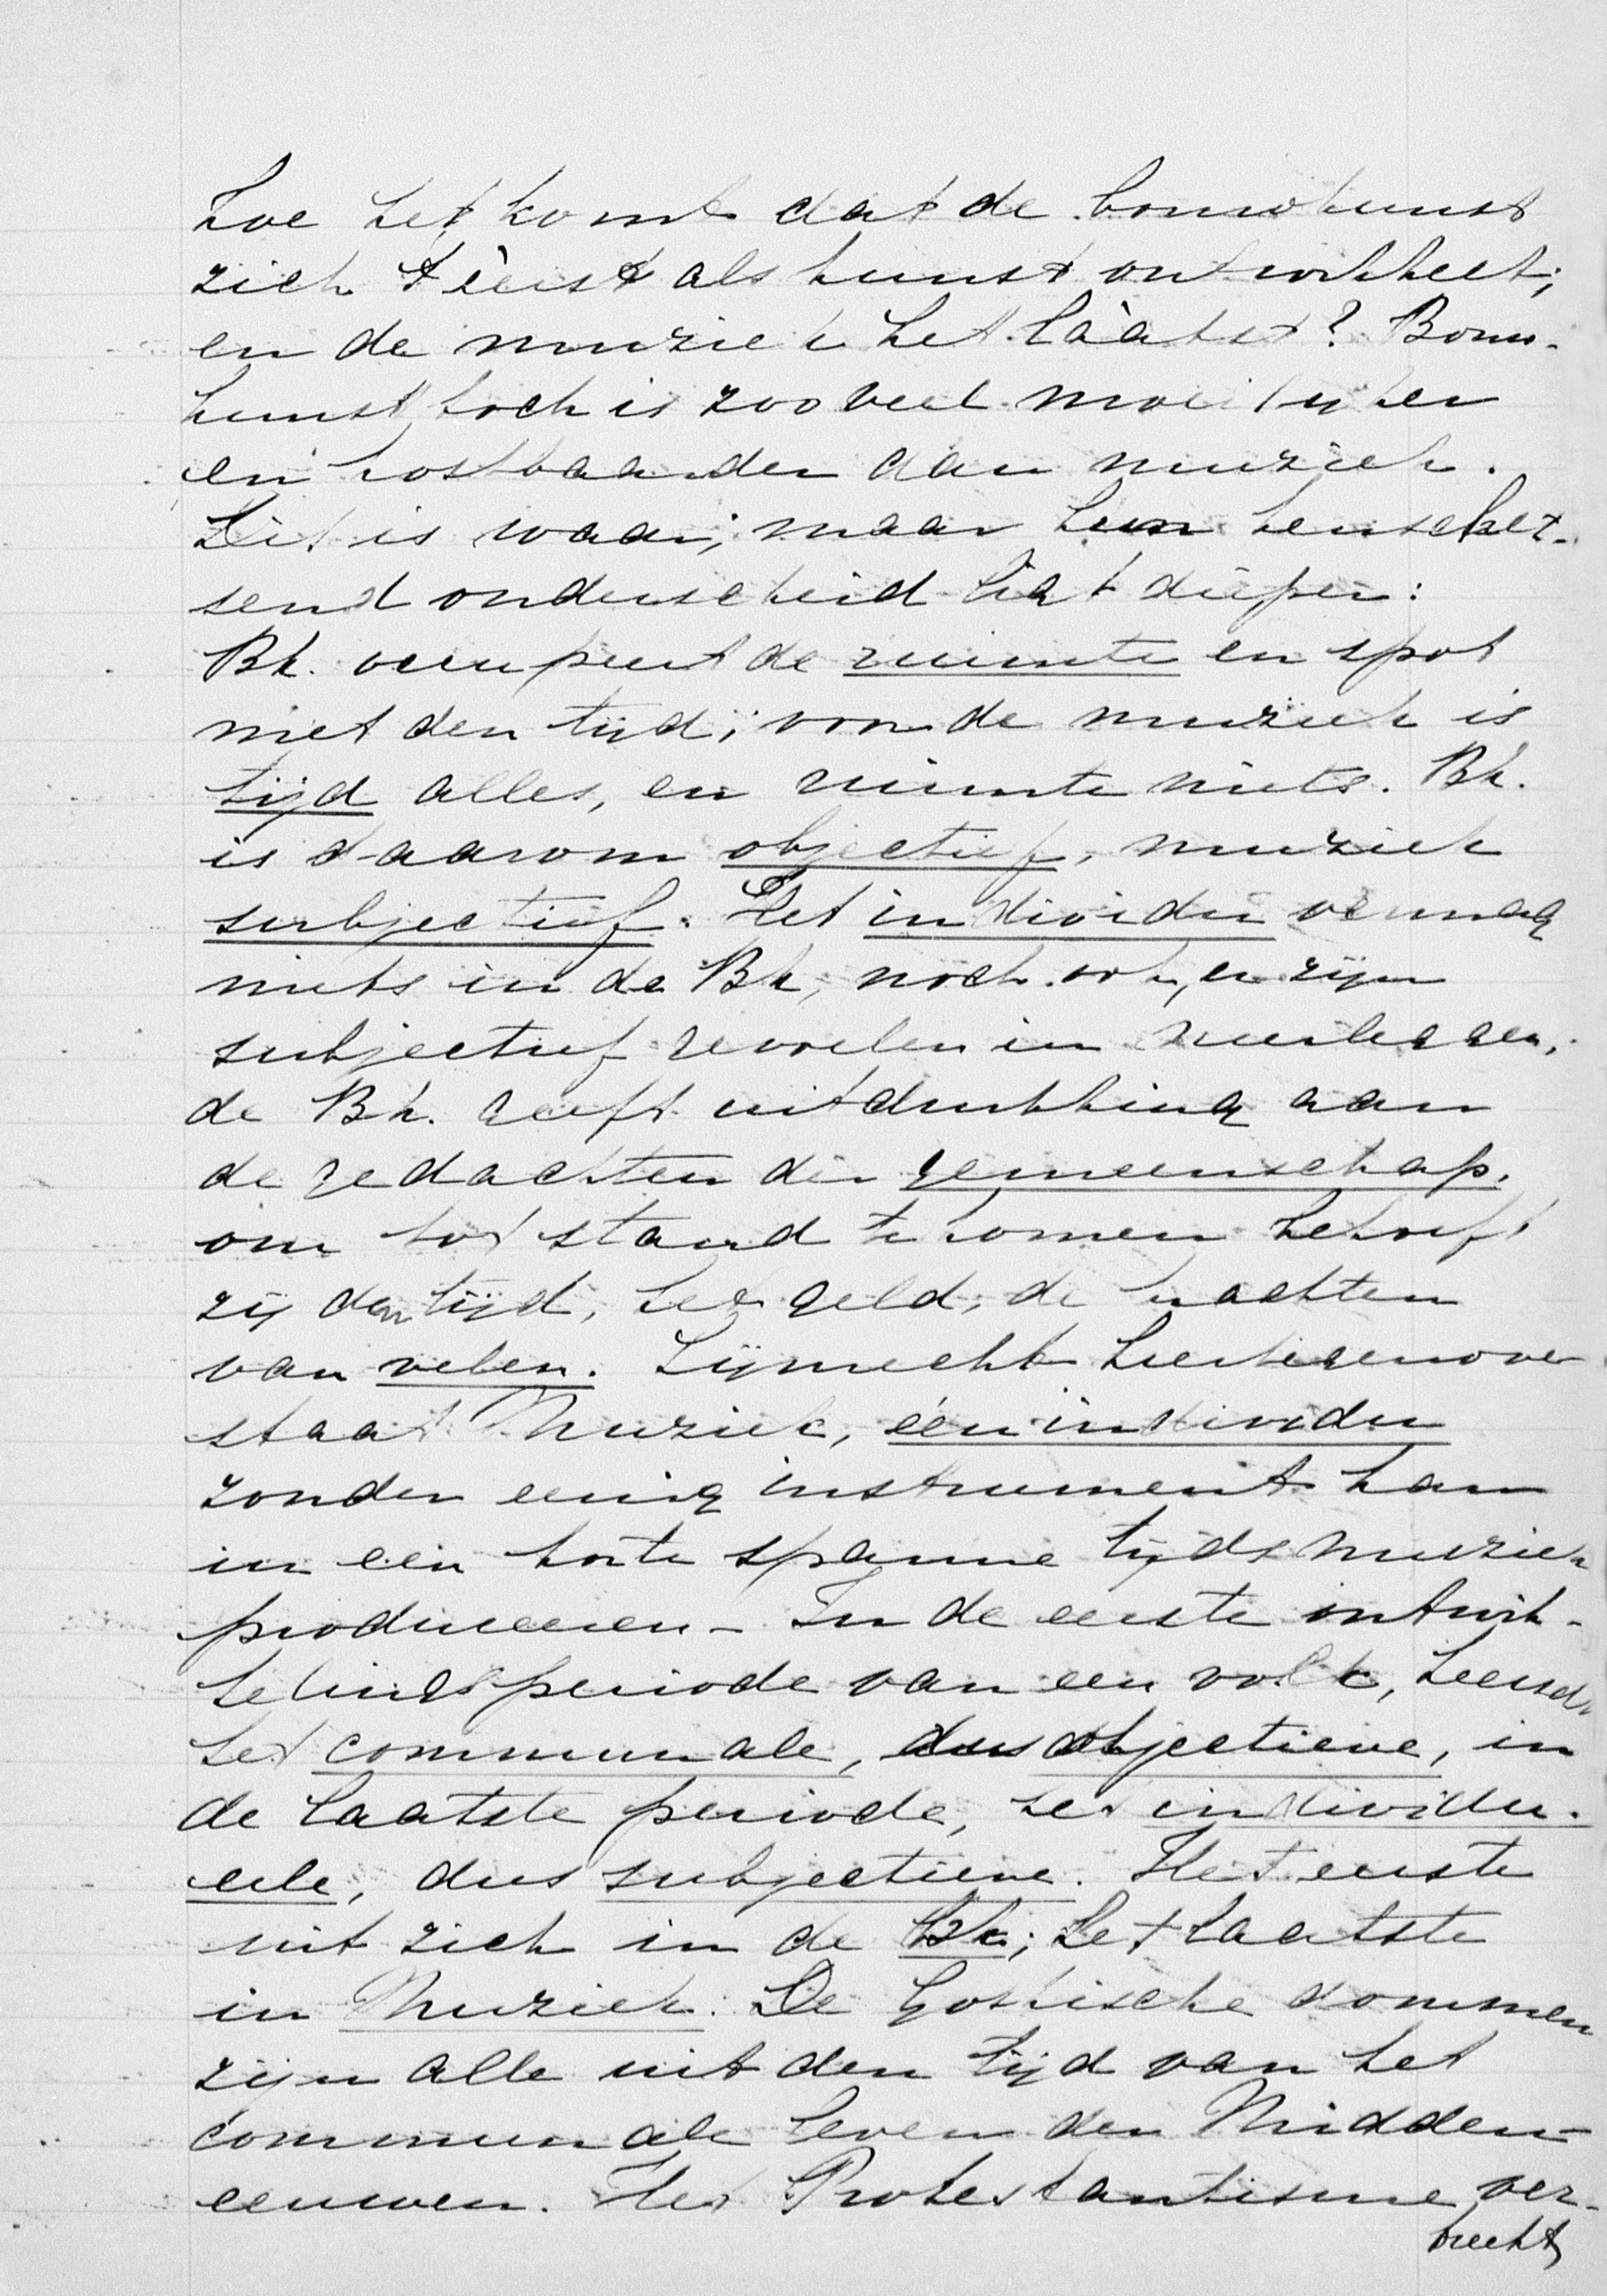 Hoe het komt dat de bouwkunst
zich 't éérst als kunst ontwikkelt;
en de muziek het láátst? Bouw-
kunst toch is zooveel moeilijker
en kostbaarder dan muziek.
Dit is waar; maar hun kenschet-
send onderscheid ligt dieper:
Bk. occupeert de ruimte en spot
met den tijd; voor de muziek is
tijd alles, en ruimte niets. Bk.
is daarom objectief, muziek
subjectief. Het individu vermag
niets in de Bk, noch ook, er zijn
subjectief gevoelen in neerleggen;
de Bk. geeft uitdrukking aan
de gedachten der gemeenschap.
om tot stand te komen behoeft
zij den tijd, het geld, de krachten
van velen. Lijnrecht hiertegenover
staat Muziek, één individu
zonder eenig instrument kan
in een korte spanne tijds muziek
produceeren – In de eerste ontwik-
kelingsperiode van een volk, heerscht
het communale, dus objectieve, in
de laatste periode, het individu-
eele, dus subjectieve. Het eerste
uit zich in de Bk; het laatste
in Muziek. De Gothische dommen
zijn alle uit den tijd van het
communale leven der Midden-
eeuwen. Het Protestantisme ver-
brecht